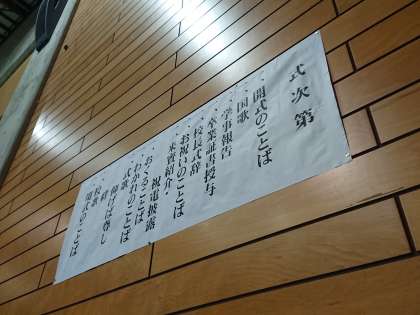 式次第
開式のことば
国歌
学事報告
卒業証書授与
校長式辞
お祝いのことば
来賓紹介・
祝電披露
おくることば
わかれのことば
式歌
仰げば尊し
絆
校歌
閉式のことば